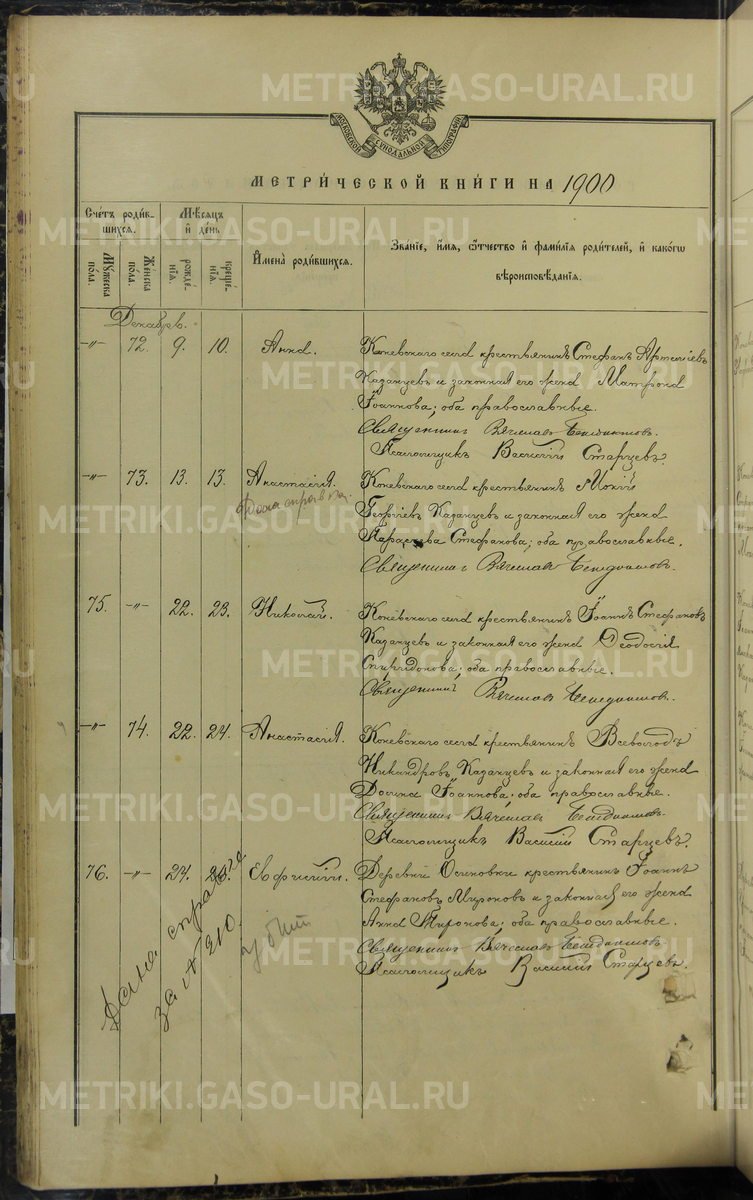 METRIKI.GASO-URAL.RU
МОСКОВСКОЙ СѴНОДАЛЬНОЙ ТИПОГРАФІИ
МЕТРИ́ЧЕСКОЙ КНИ́ГИ НА 1900
Сче́тъ роди́в-
шихся.
Мѣ́сяцъ
и҆ де́нь
Му́жеска
по́ла.
Же́нска
по́ла.
рожде́-
нїя.
креще́-
нїя.
И҆мена̀ роди́вшихся.
Зва́нїе, и҆́мя, ѻ҆́тчество и҆ фами́лїя роди́телей, и҆ како́гѡ
вѣроисповѣ́данїя.
Декабрь.
-"- 72. 9. 10. Анна. Коневскаго села крестьянинъ Стефанъ
Казанцевъ и законная его жена Матрона
Іоаннова; оба православные.
Священникъ Вячеслав
Псаломщикъ Василій Старцевъ.
-"- 73. 13. 13. Анастасія. Коневскаго села крестьянинъ Мокій
Георгіевъ Казанцевъ и законная его жена
Дана справка
Параскева Стефанова; оба православные.
Священникъ Вячеслав
75. -"- 22. 23. Николай. Коневскаго села крестьянинъ Іоаннъ Стефановъ
Казанцевъ и законная его жена Ѳеодосія
Спиридонова; оба православные.
Священникъ Вячеслав
-"- 74. 22. 24. Анастасія. Коневскаго села крестьянинъ Всеволодъ
Никандровъ Казанцевъ и законная его жена
Іоаннова; оба православные.
Священникъ Вячеслав
Псаломщикъ Василій Старцевъ.
76. -"- 24. Евфисій. Деревни Осиновки крестьянинъ Іоаннъ
Стефановъ Мироновъ и законная его жена
Анна Миронова; оба православные.
Священникъ Вячеслав
Псаломщикъ Василій Старцевъ.
Дана справка
за № 210.
убит